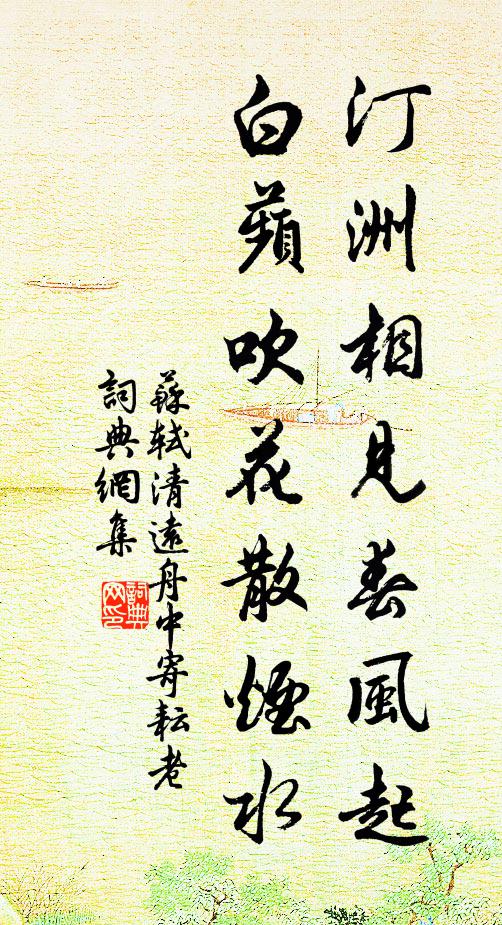 汀洲相見春風起
白蘋吹花散煙水
蘇軾清遠舟中寄耘老
詞典網集
詞典
网印